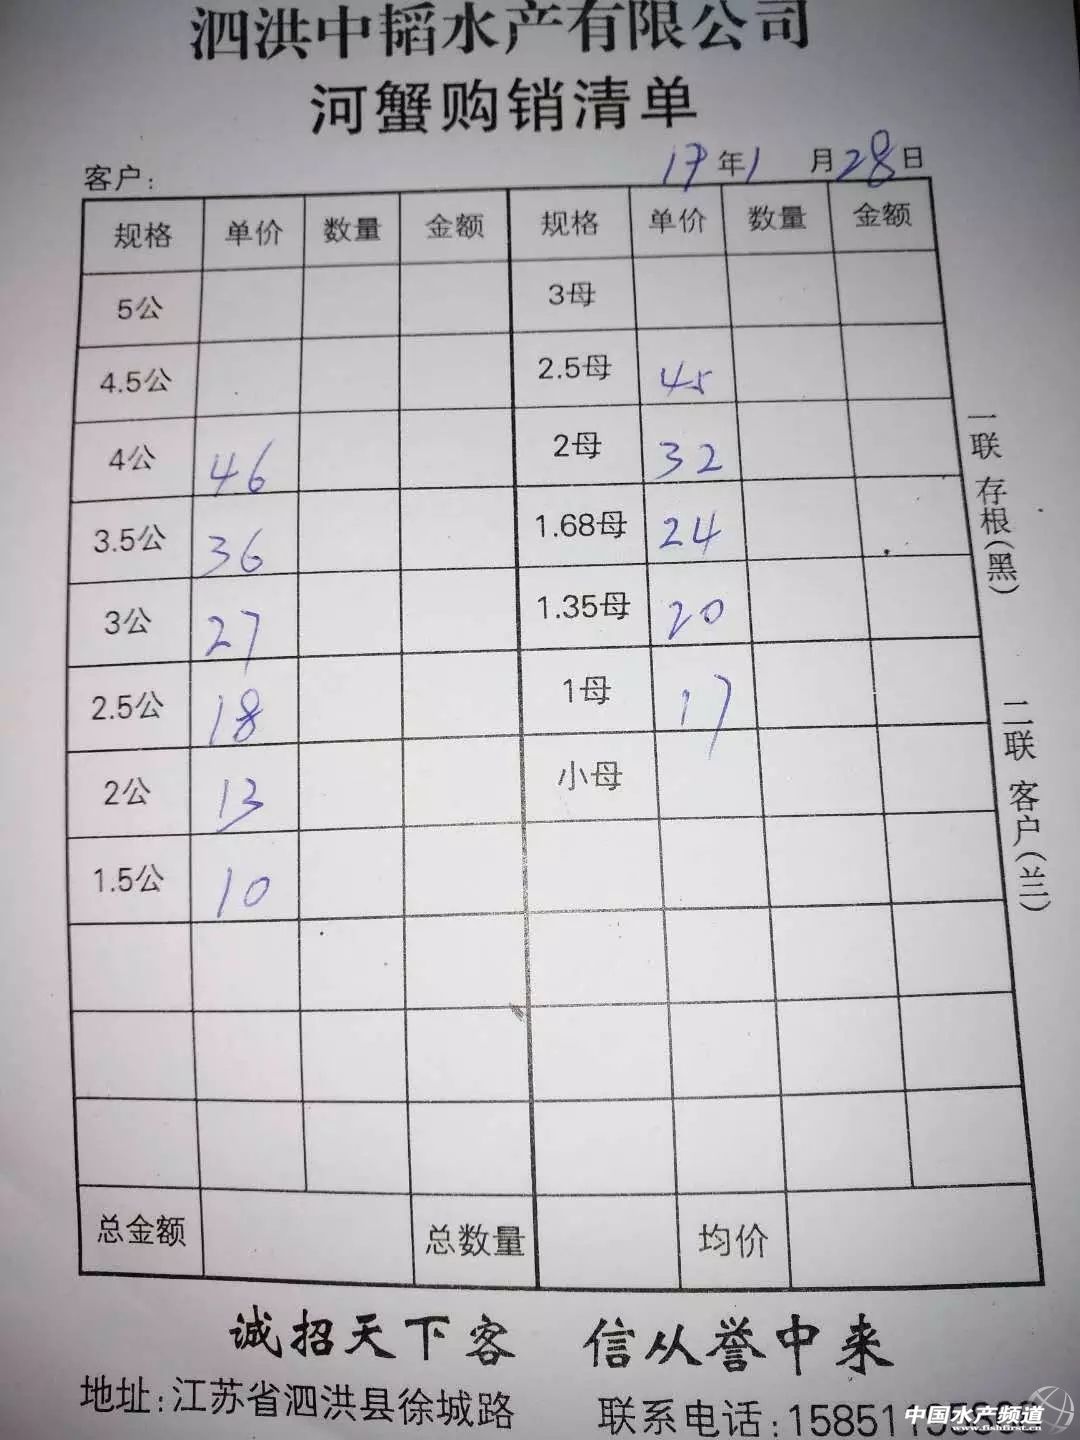 泗洪中韬水产有限公司
河蟹购销清单
客户: 17年1月28日
规格 单价 数量 金额 规格 单价 数量 金额
5公 3母
4.5公 2.5母 45
4公 46 2母 32
3.5公 36 1.68母 24
3公 27 1.35母 20
2.5公 18 1母 17
2公 13 小母
1.5公 10
总金额 总数量 均价
一联 存根(黑)
二联 客户(兰)
诚招天下客 信从誉中来
地址:江苏省泗洪县徐城路 联系电话:15851
中国水产频道
www.fishfirst.cn